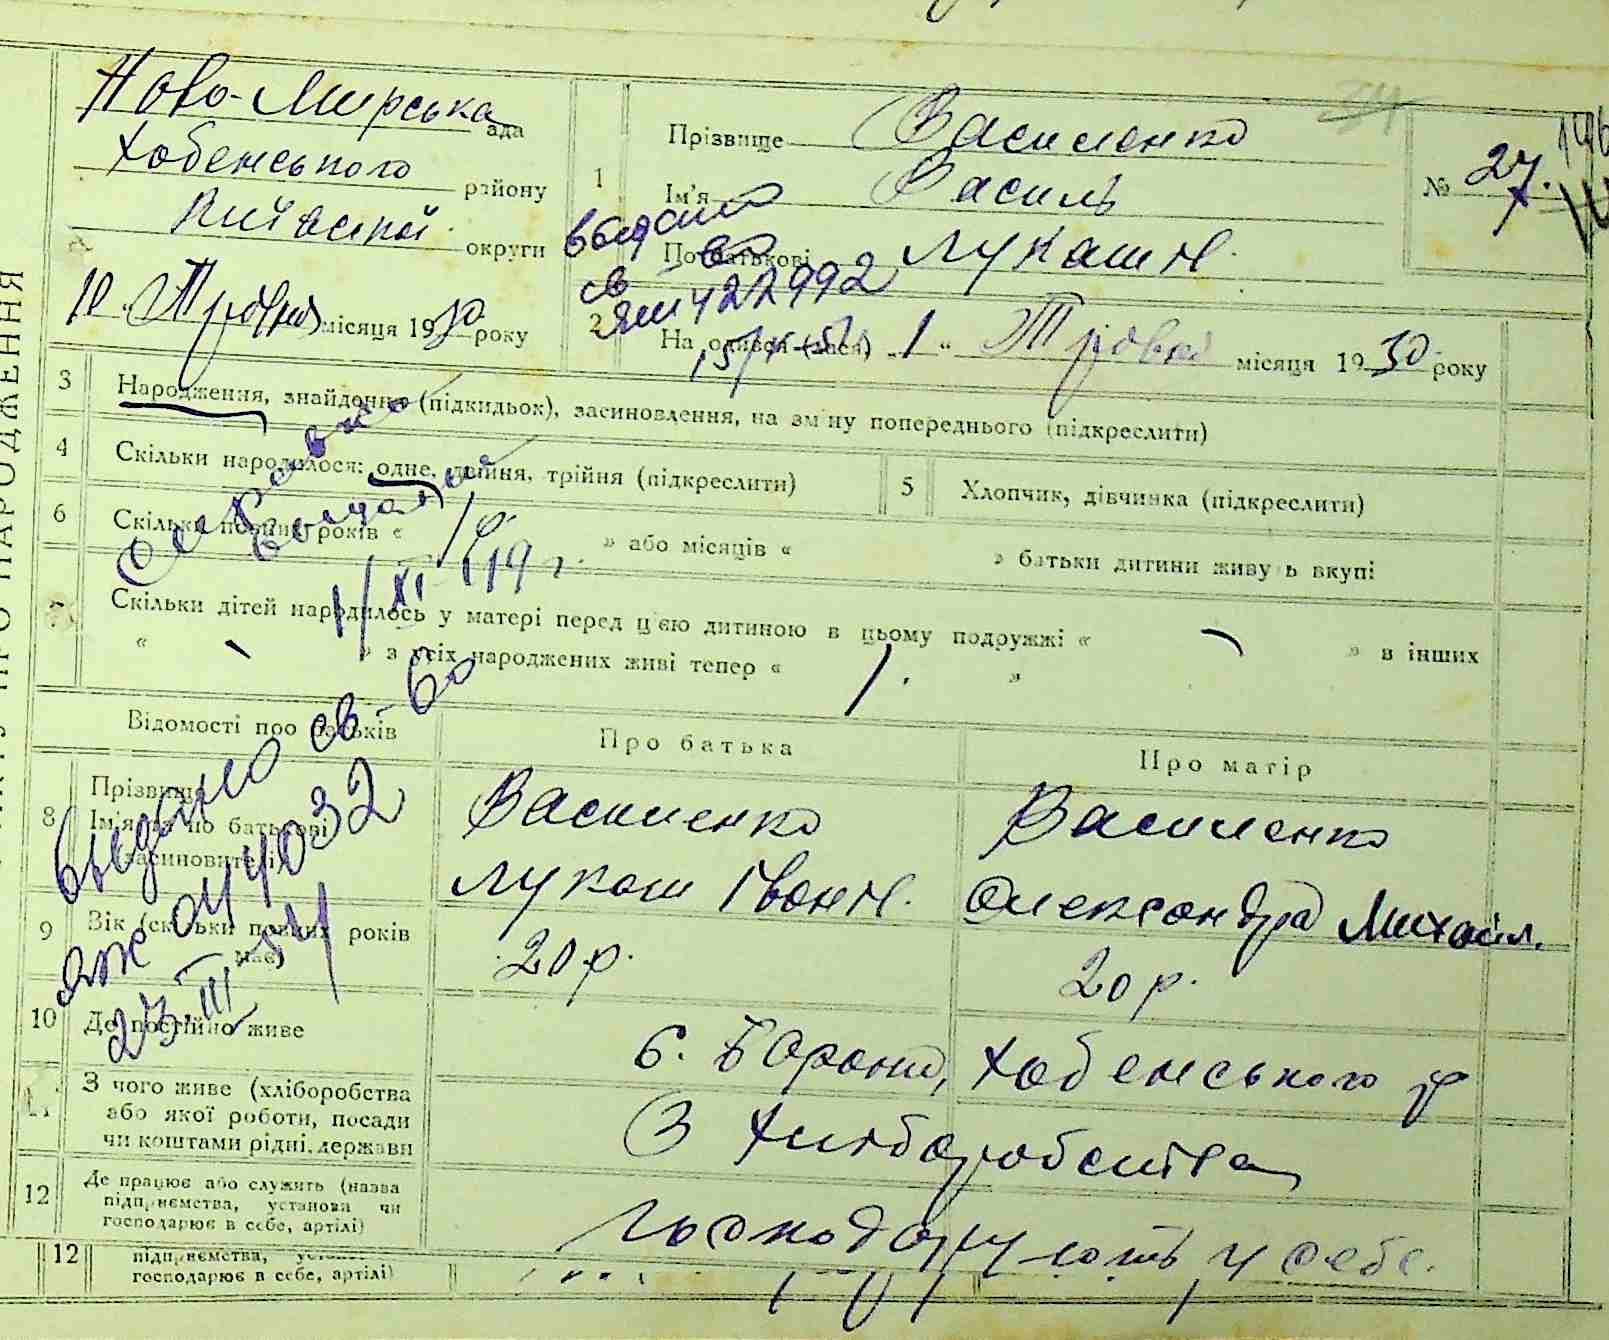 Ново-Мирська рада
Хобенського району
Київської округи
10 Травня місяця 1930 року
1 Прізвище Василенко
Ім'я Василь
По батькові Лукаш Н.
№ 27.
34
выдано
св
ЯШ 422992
2 На одився (лася) „1“ Травня місяця 1930 року
3 Народження, знайдення (підкидьок), засиновлення, на зміну попереднього (підкреслити)
4 Скільки народилося: одне, двійня, трійня (підкреслити)
5 Хлопчик, дівчинка (підкреслити)
6 Скільки повних років « » або місяців « » батьки дитини живуть вкупі
7 Скільки дітей народилось у матері перед цією дитиною в цьому подружжі « » в інших
« » з усіх народжених живі тепер « 1. »
Справка
выдана
Відомості про батьків
Про батька
Про матір
8 Прізвище
Ім'я та по батькові
засиновителі
Василенко
Лукаш Іван Н.
Василенко
Олександра Михайл.
выдано св-во
044032
23.III-54
9 Вік (скільки повних років має)
20 р.
20 р.
10 Де постійно живе
с. Бороно, Хобенського р
З чого живе (хліборобства
або якої роботи, посади
чи коштами рідні, держави
З Хліборобства
12 Де працює або служить (назва
підприємства, установа чи
господарює в себе, артілі)
Господарують у себе.
12 підприємства,
господарює в себе, артілі)